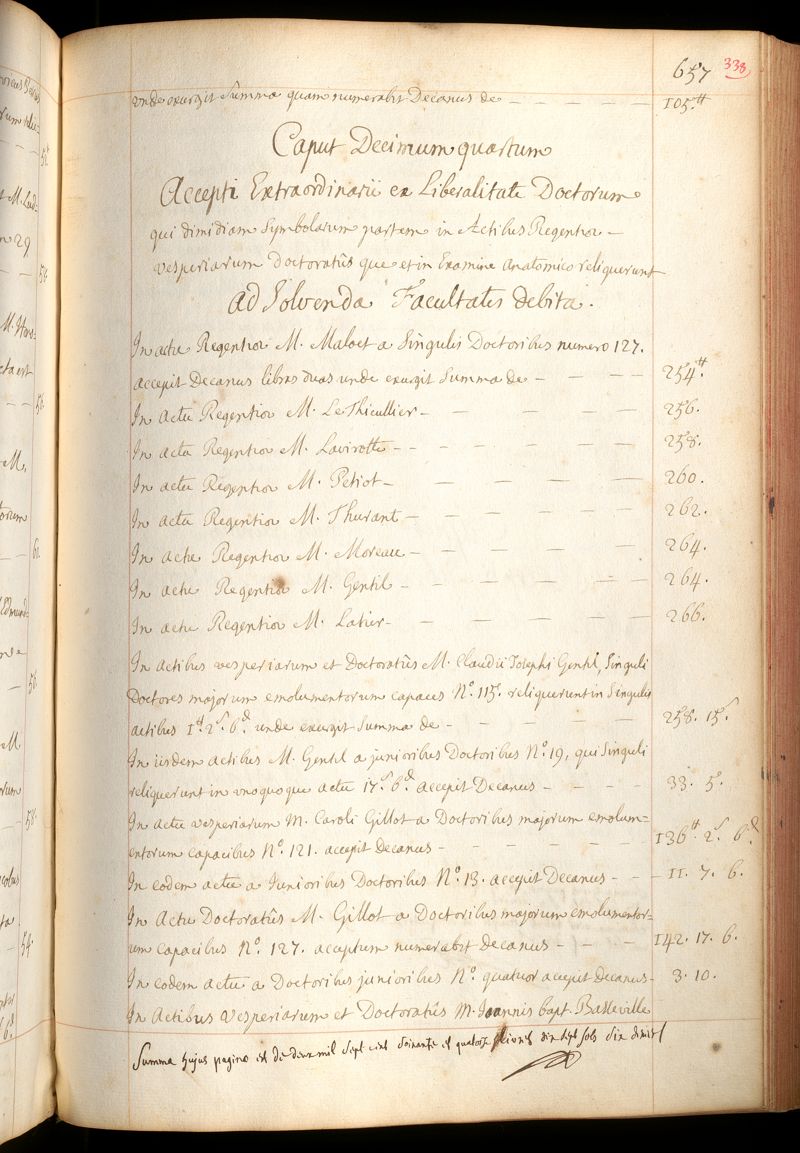 657 338
unde exurgit Summa quam numerabit Decanus de — — — — 105.₶
Caput Decimum quartum
Accepti Extraordinarii ex Liberalitate Doctorum
qui dimidiam Symbolarum partem in Actibus Regentiæ —
vesperiarum Doctoratûs que et in Examine Anatomico reliquerunt
ad Solvenda Facultatis debita.
In actu Regentiæ M. Maloet a Singulis Doctoribus numero 127.
accepit Decanus libras duas unde exurgit Summa de — — — — 254₶.
In Actu Regentiæ M. LeThieullier — — — — — 256.
In actu Regentiæ M. Lavirotte — — — — — — 258.
In actu Regentiæ M. Petiot — — — — — 260.
In actu Regentiæ M. Thurant — — — — — 262.
In actu Regentiæ M. Moreau — — — — — 264.
In actu Regentiæ M. Gentil — — — — — 264.
In actu Regentiæ M. Latier — — — — — 266.
In Actibus vesperiarum et Doctoratûs M. Claudii Josephi Gentil, Singuli
Doctores majorum emolumentorum capaces N.º 115. reliquerunt in Singulis
actibus 1₶. 2ˢ. 6ᵈ. unde exurgit Summa de — — — — — 258. 15ˢ.
In iisdem actibus M. Gentil a junioribus Doctoribus N.º 19, qui Singuli
reliquerunt in unoquoque actu 17ˢ. 6ᵈ. accepit Decanus — — — — 33. 5ˢ.
In Actu vesperiarum M. Caroli Gillot a Doctoribus majorum emolum-
entorum capacibus N.º 121. accepit Decanus — — — — — 136₶. 2ˢ. 6ᵈ.
In eodem actu a Junioribus Doctoribus N.º 13. accepit Decanus — — — 11. 7. 6.
In Actu Doctoratûs M. Gillot a Doctoribus majorum emolumentor-
um capacibus N.º 127. acceptum numerabit decanus — — — 142. 17. 6.
In eodem actu a Doctoribus junioribus N.º quatuor accepit Decanus — 3. 10.
In Actibus vesperiarum et Doctoratûs M. Joannis bapt. Basseville
Summa hujus paginæ est de deux mil Sept cent Soixante et quatorze livres dix sept sols six deniers